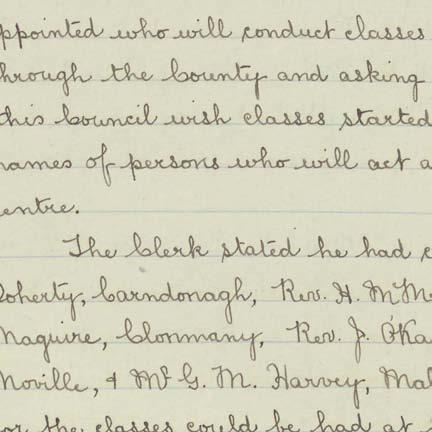 ppointed who will conduct classes
hrough the County and asking
this Council wish classes started
names of persons who will act a
entre.
The Clerk stated he had c
Doherty, Carndonagh, Rev. H. McM
Maguire, Clonmany, Rev. J. O'Ka
Moville, & Mr. G. M. Harvey, Mal
or the classes could be had at